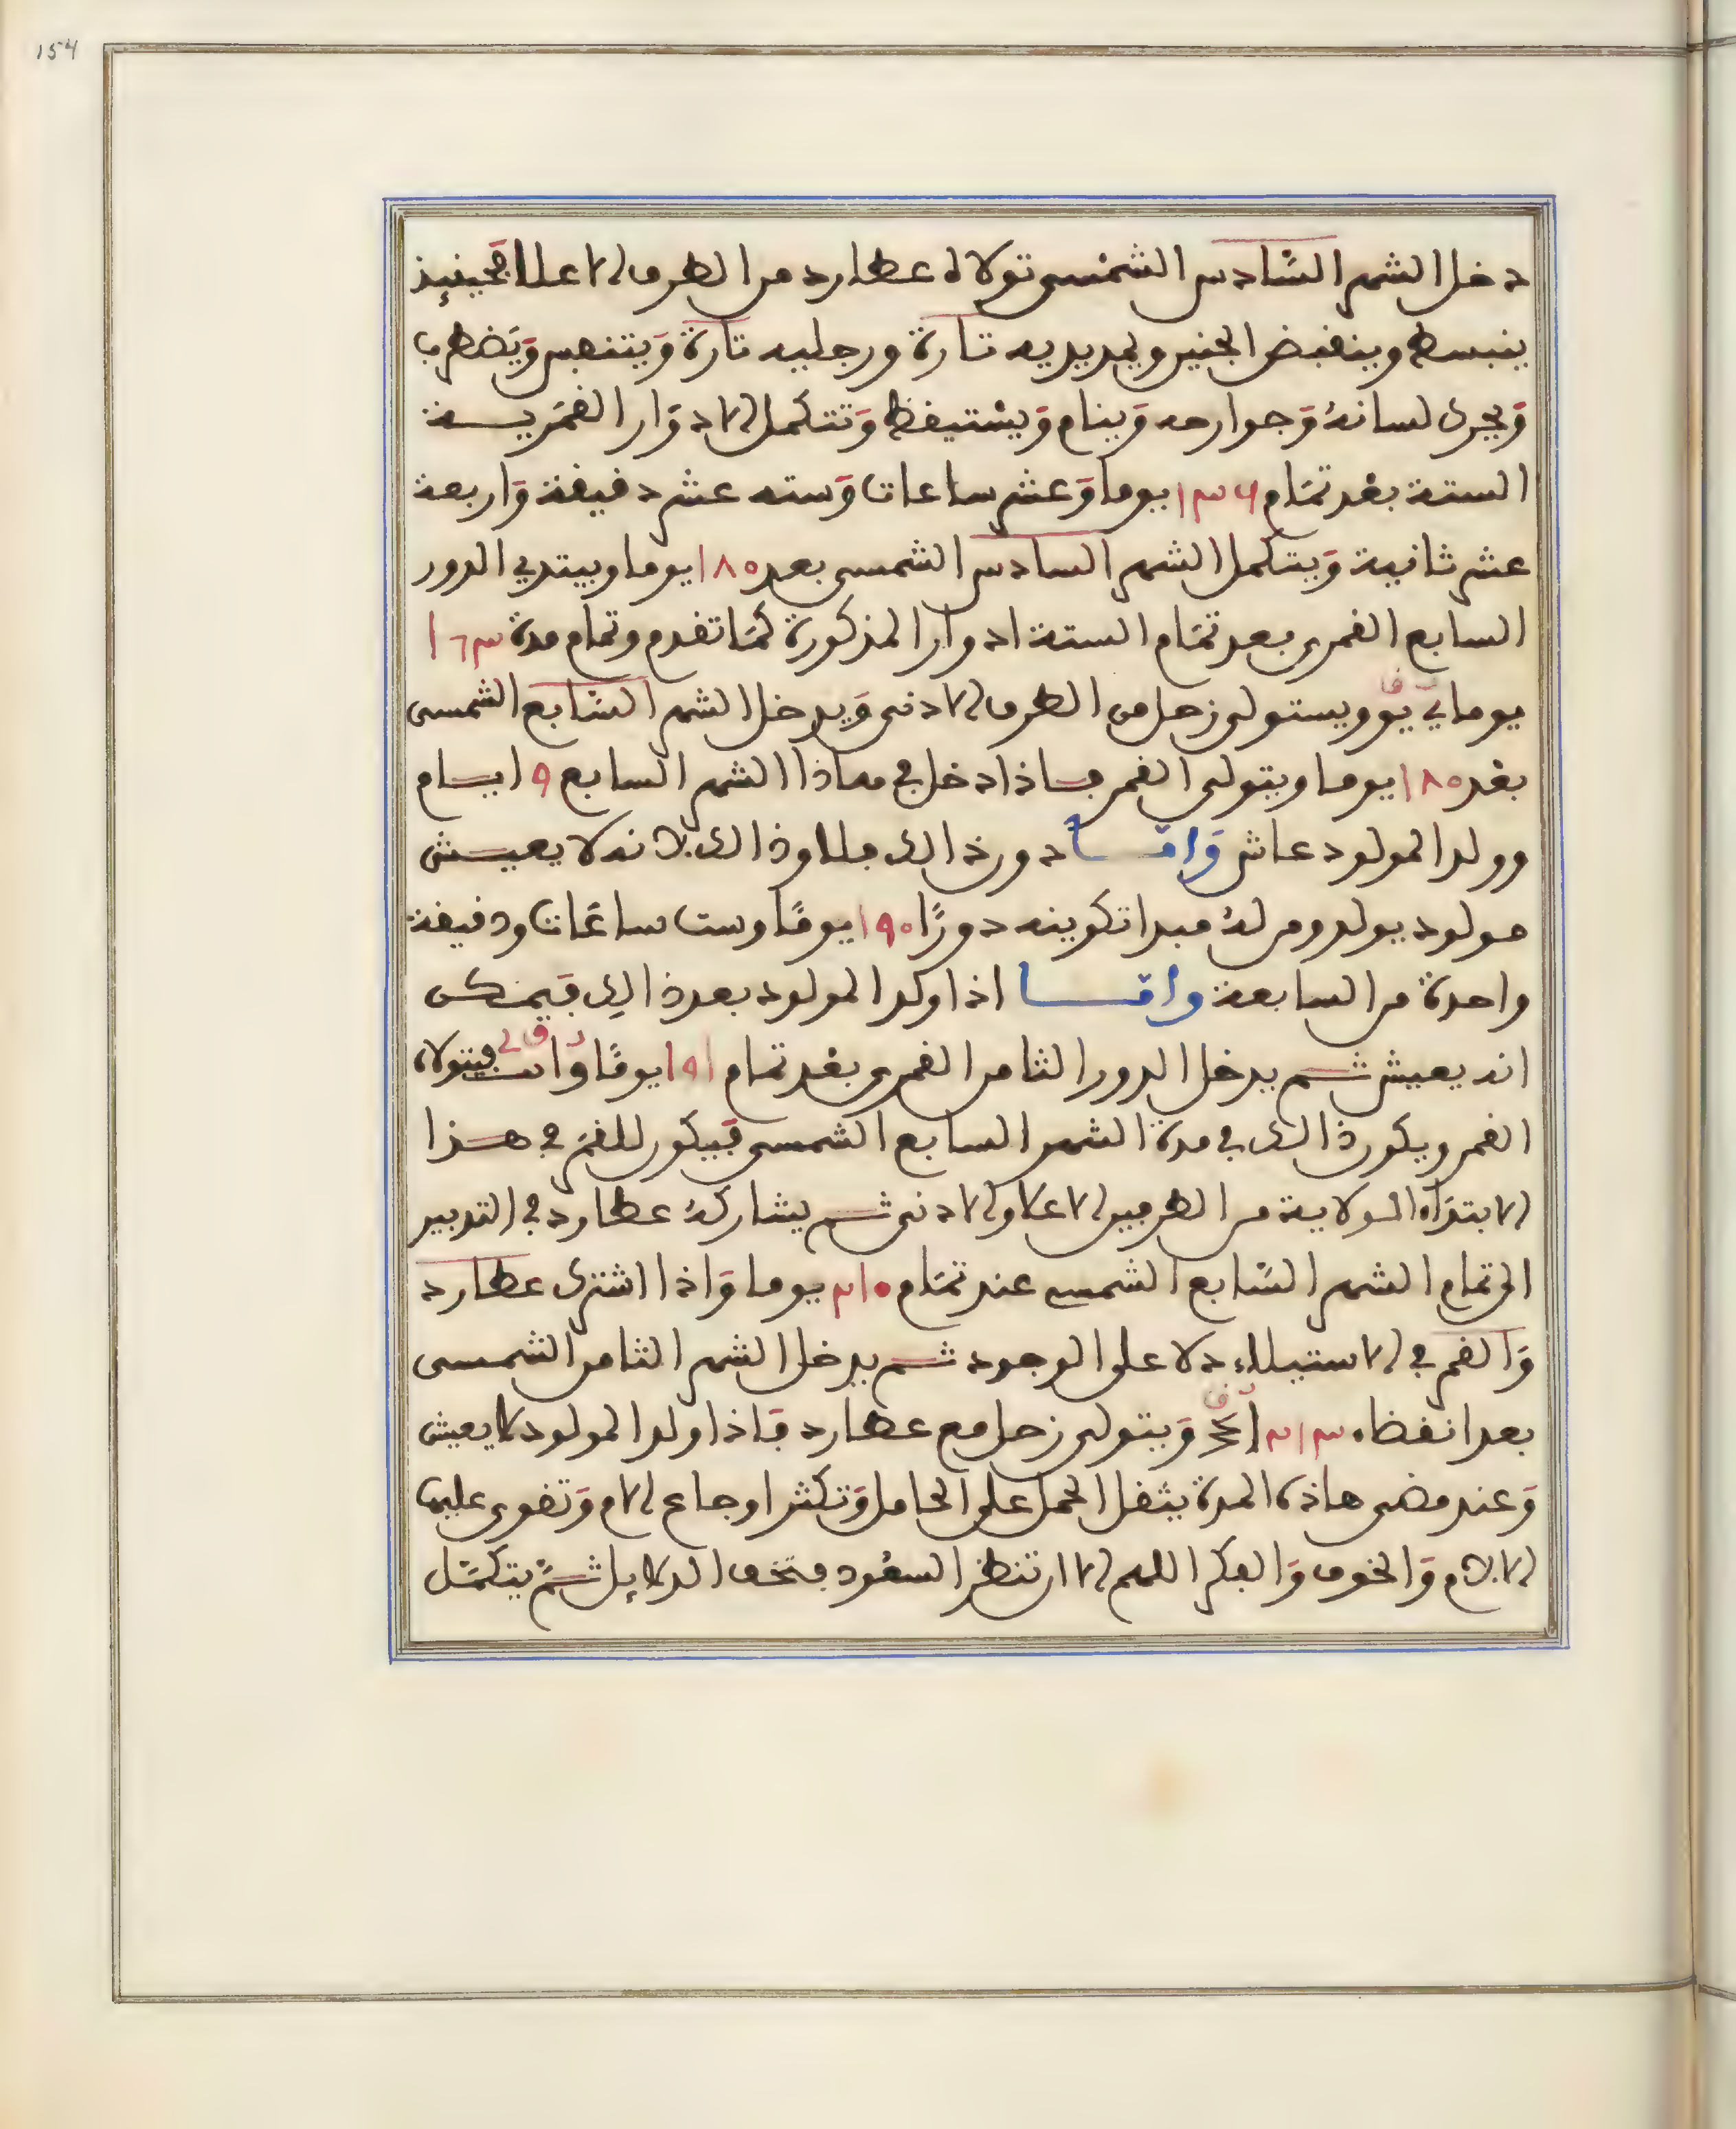 154
دخل الشهر السّادس الشمسى تولاه عطارد من الطرف الاعلا فحينيذ
ينبسط وينقبض الجنين ويمد يديه تارة ورجليه تارة وَيتنفس وَيَضطرب
وَيجرى لسانهُ وَجوارحه وَينام وَيستيقظ وَتتكمل الادوَار القمَرية
الستة بعْد تمَام ١٣٦ يوما وَعشر ساعات وَسته عشر دقيقة وَاربعة
عشر ثانية وَيتكمل الشهر السادس الشمسى بعد ١٨٥ يوما ويبتدي الدور
السابع القمرى بعد تمَام الستة ادوار المذكورة كمَا تقدم وتمام مدة ١٦٣
يوما ويستولى زحل من الطرف الادنى وَيدخل الشهر السّابع الشمسى
بعْد ١٨٥ يوما ويتولى القمر فاذا دخل في هاذا الشهر السابع ٩ ايام
وولد المولود عاش وَامّا دون ذالك فلا وذالك لانه لا يعيش
مولود يولد ومن لهُ مبدا تكوينه دورًا ١٩٥ يومًا وست ساعَات ودقيقة
واحدة من السابعة وامّا اذا ولد المولود بعد ذالك فيَمكن
انه يعيش ثم يدخل الدور الثامن القمرى بعْد تمام ١٩١ يومًا فيتولاه
القمر ويكون ذالك في مدة الشهر السابع الشمسى فيَكون للقمَر في هذا
الابتدَاء الولاية من الطرفين الاعلا والادنى ثم يشاركهُ عطارد في التدبير
الى تمام الشهر السّابع الشمسي عند تمَام ٢١٠ يوما وَاذا اشترك عطارد
وَالقمر في الاستيلاء دلا على الوجود ثم يدخل الشهر الثامن الشمسى
بعد انقضاء ٢١٣ وَيتولى زحل مع عطارد فَاذا ولد المولود لا يعيش
وَعند مضى هاذه المدة يثقل الحمل على الحامل وَتكثر اوجاع الام وَتقوى عليها
الالام وَالخوف وَالفكر اللهم الا ان تنظر السعُود فتخف الدلايل ثمّ يتكمّل